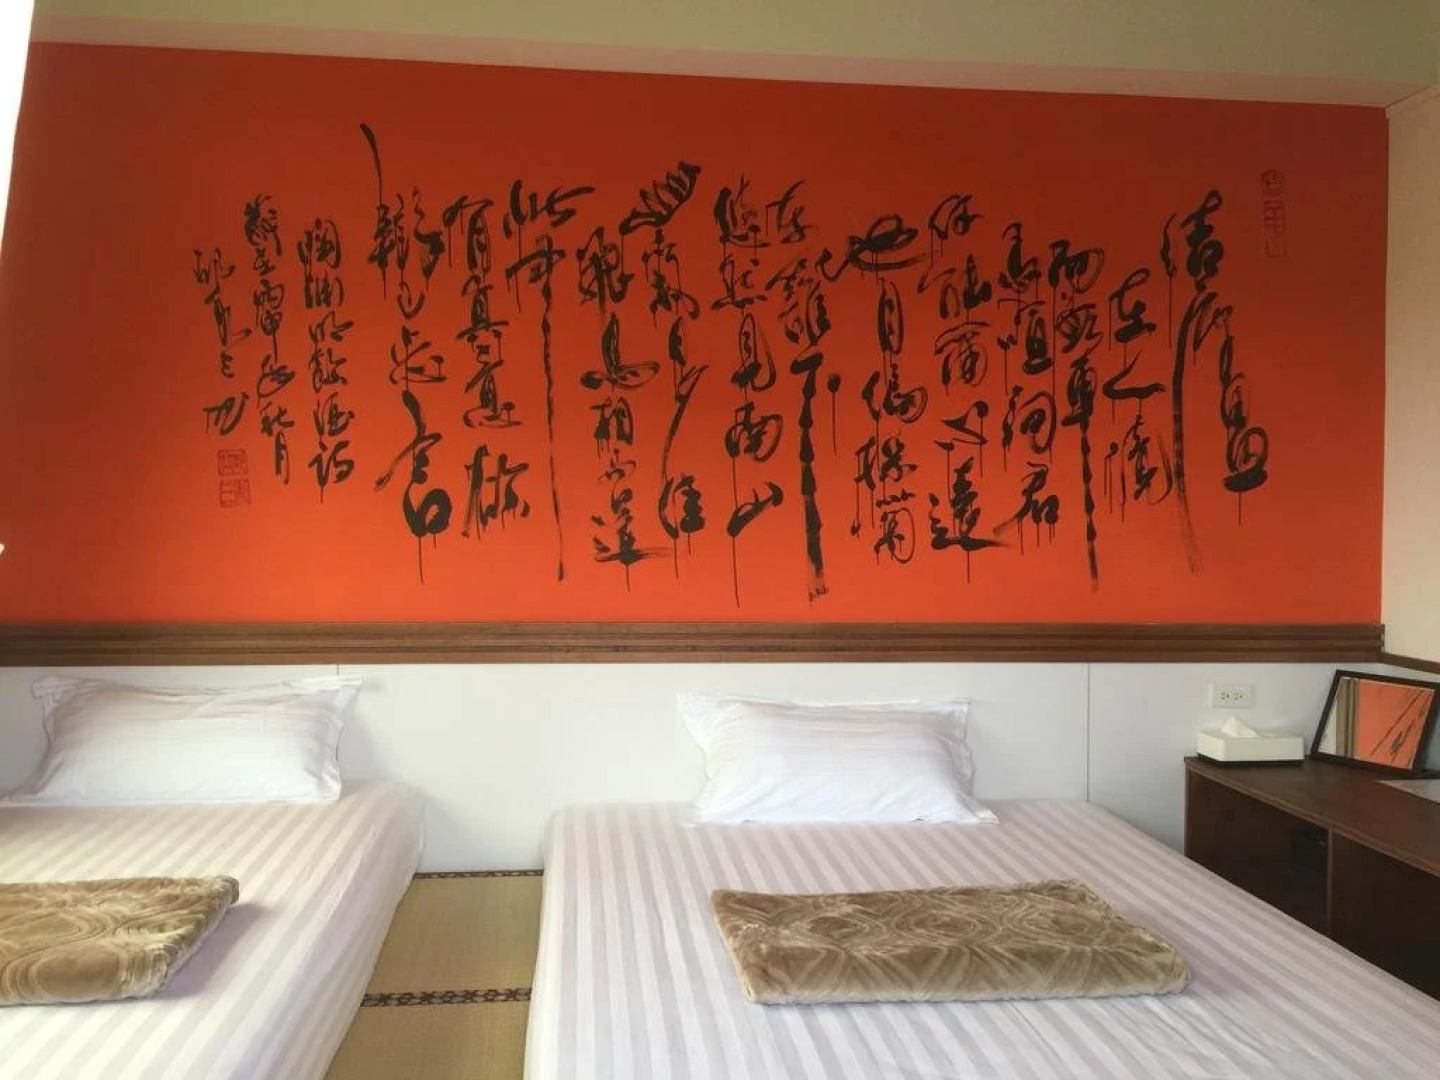 結廬
在人境
而無車
馬喧問君
何能爾心遠
地自偏採菊
東籬下
悠然見南山
山氣日夕佳
飛鳥相与還
此中
有真意欲
辨已忘言
陶淵明飲酒詩